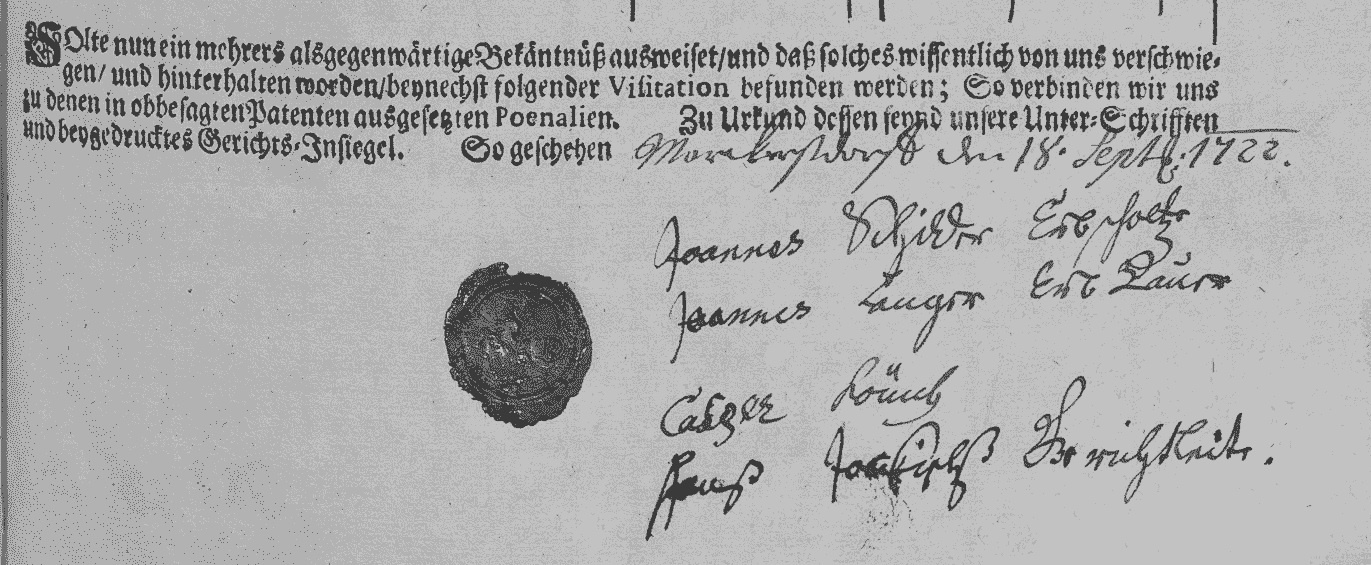 SOlte nun ein mehrers als gegenwärtige Bekäntnüß ausweiset/ und daß solches wissentlich von uns verschwie-
gen/ und hinterhalten worden/ beynechst folgender Visitation befunden werden; So verbinden wir uns
zu denen in obbesagten Patenten ausgesetzten Poenalien. Zu Urkund dessen seynd unsere Unter-Schrifften
und beygedrucktes Gerichts-Insiegel. So geschehen den 18. Sept: 1722.
Joannes Schilder Erbscholtz
Joannes Langer Erb Bauer
Casper
Hanß Gerichtleite.